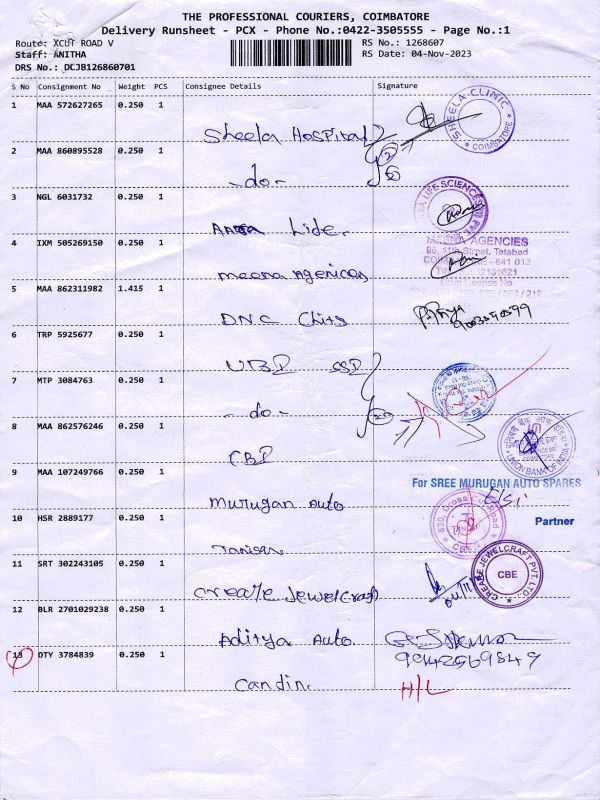 THE PROFESSIONAL COURIERS, COIMBATORE
Delivery Runsheet - PCX - Phone No.:0422-3505555 - Page No.:1
Route: XCUT ROAD V
Staff: ANITHA
DRS No.: DCJB126860701
RS No.: 1268607
RS Date: 04-Nov-2023
S No Consignment No Weight PCS Consignee Details Signature
1 MAA 572627265 0.250 1
Sheela Hospital
SHEELA CLINIC
* COIMBATORE *
2 MAA 860895528 0.250 1
-do-
3 NGL 6031732 0.250 1
LIFE SCIENCES
4 IXM 505269150 0.250 1
Meena Agenicas
MEENA AGENCIES
96, 11th Street, Tatabad
641 012
5 MAA 862311982 1.415 1
DNC Chits
6 TRP 5925677 0.250 1
UBI SSI
7 MTP 3084763 0.250 1
-do-
8 MAA 862576246 0.250 1
CBI
UNION BANK OF INDIA
9 MAA 107249766 0.250 1
Murugan Auto
For SREE MURUGAN AUTO SPARES
Partner
10 HSR 2889177 0.250 1
839, Cross Cut Road
11 SRT 302243105 0.250 1
Create Jewelcraft
CREATE JEWELCRAFT PVT. LTD.
CBE
12 BLR 2701029238 0.250 1
Aditya Auto
13 OTY 3784839 0.250 1
Candin
H/L